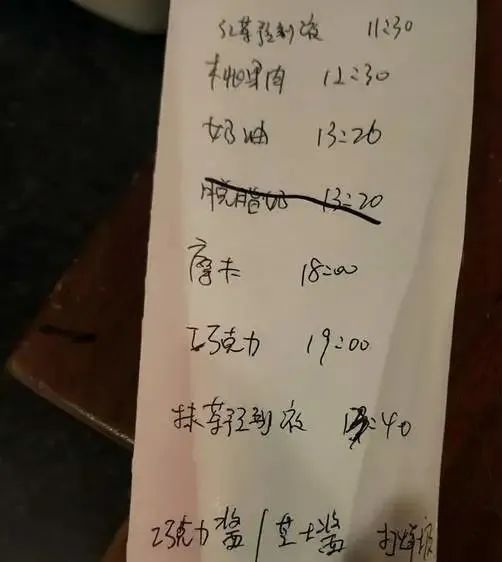 红茶轻到液 11:30
桃果肉 12:30
奶油 13:26
脱脂奶 13:20
摩卡 18:00
巧克力 19:00
抹茶轻到液 :40
巧克力酱/芝士酱 打烊